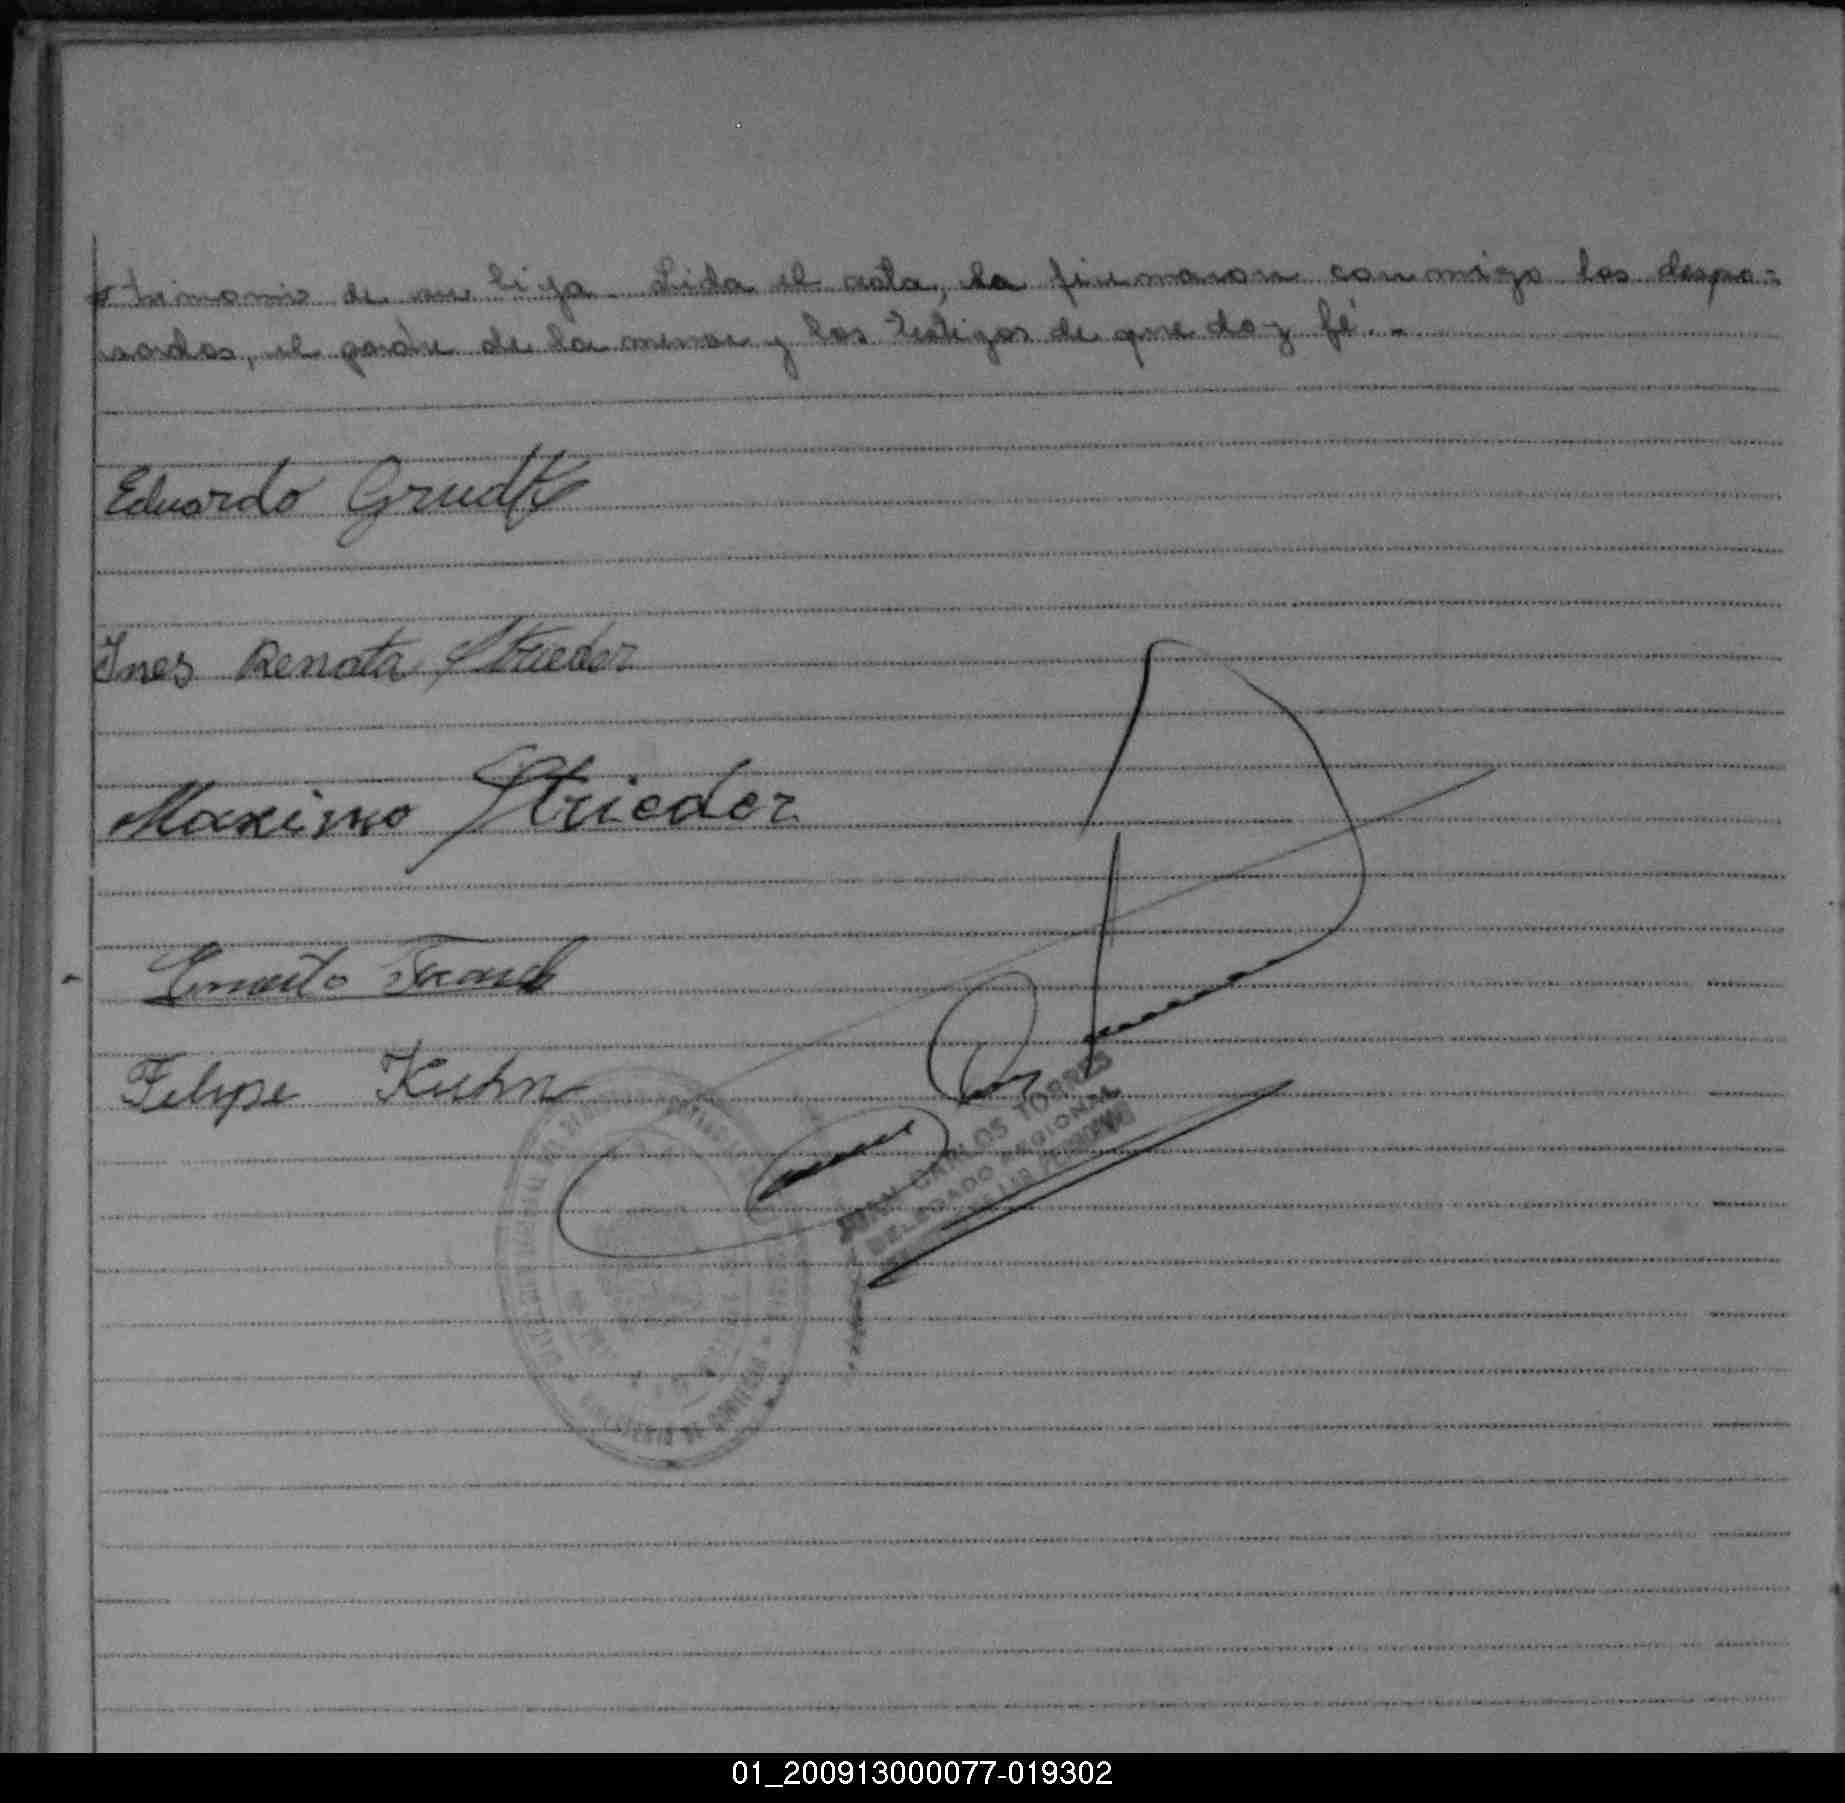 trimonio de su hija. Leida el acta, la firmaron conmigo los despo=
sados, el padre de la menor y los testigos de que doy fé.-
Eduardo
Ines Renata Strieder
Maximo Strieder
Ernesto
Felipe Kuhn
JUAN CARLOS TORRES
DELEGADO REGIONAL
01_200913000077-019302